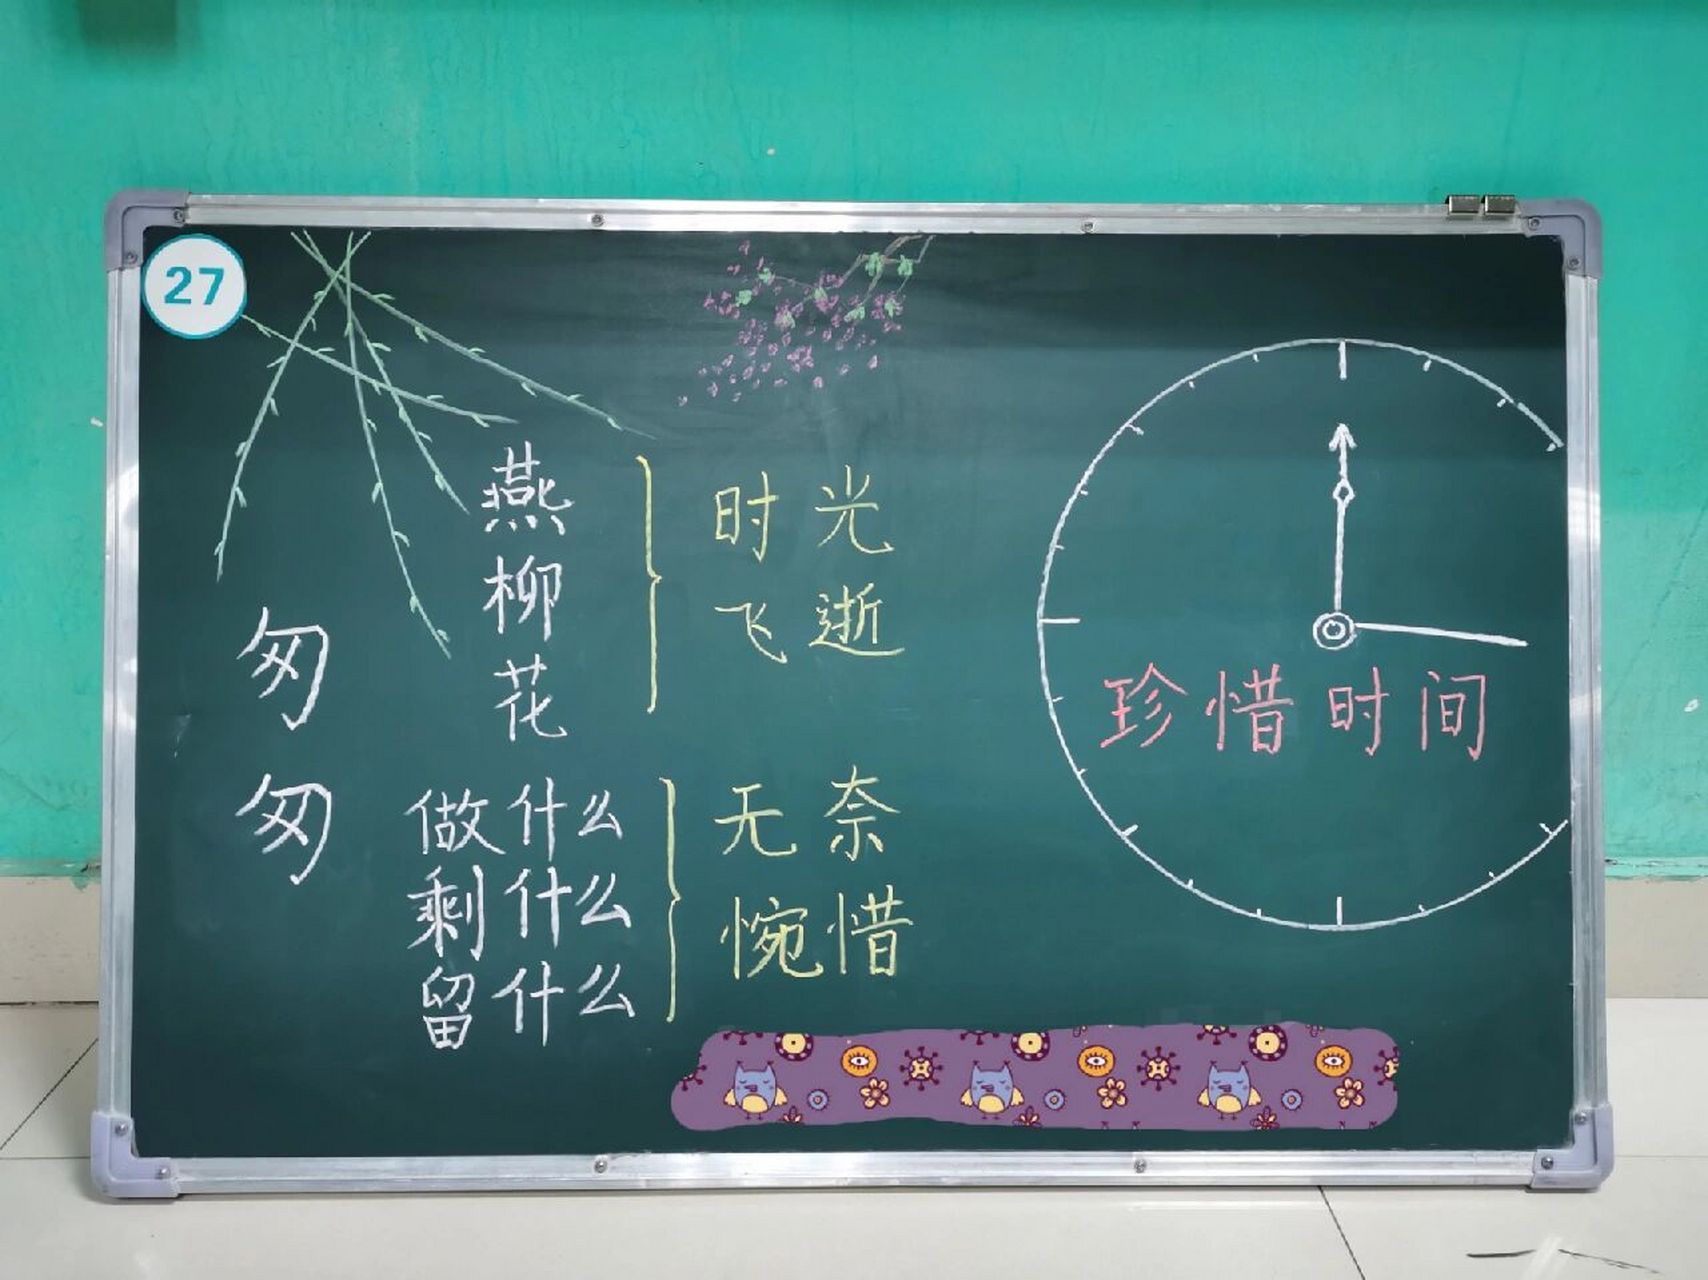 27
匆匆
燕
柳
花
时光
飞逝
做什么
剩什么
留什么
无奈
惋惜
珍惜时间